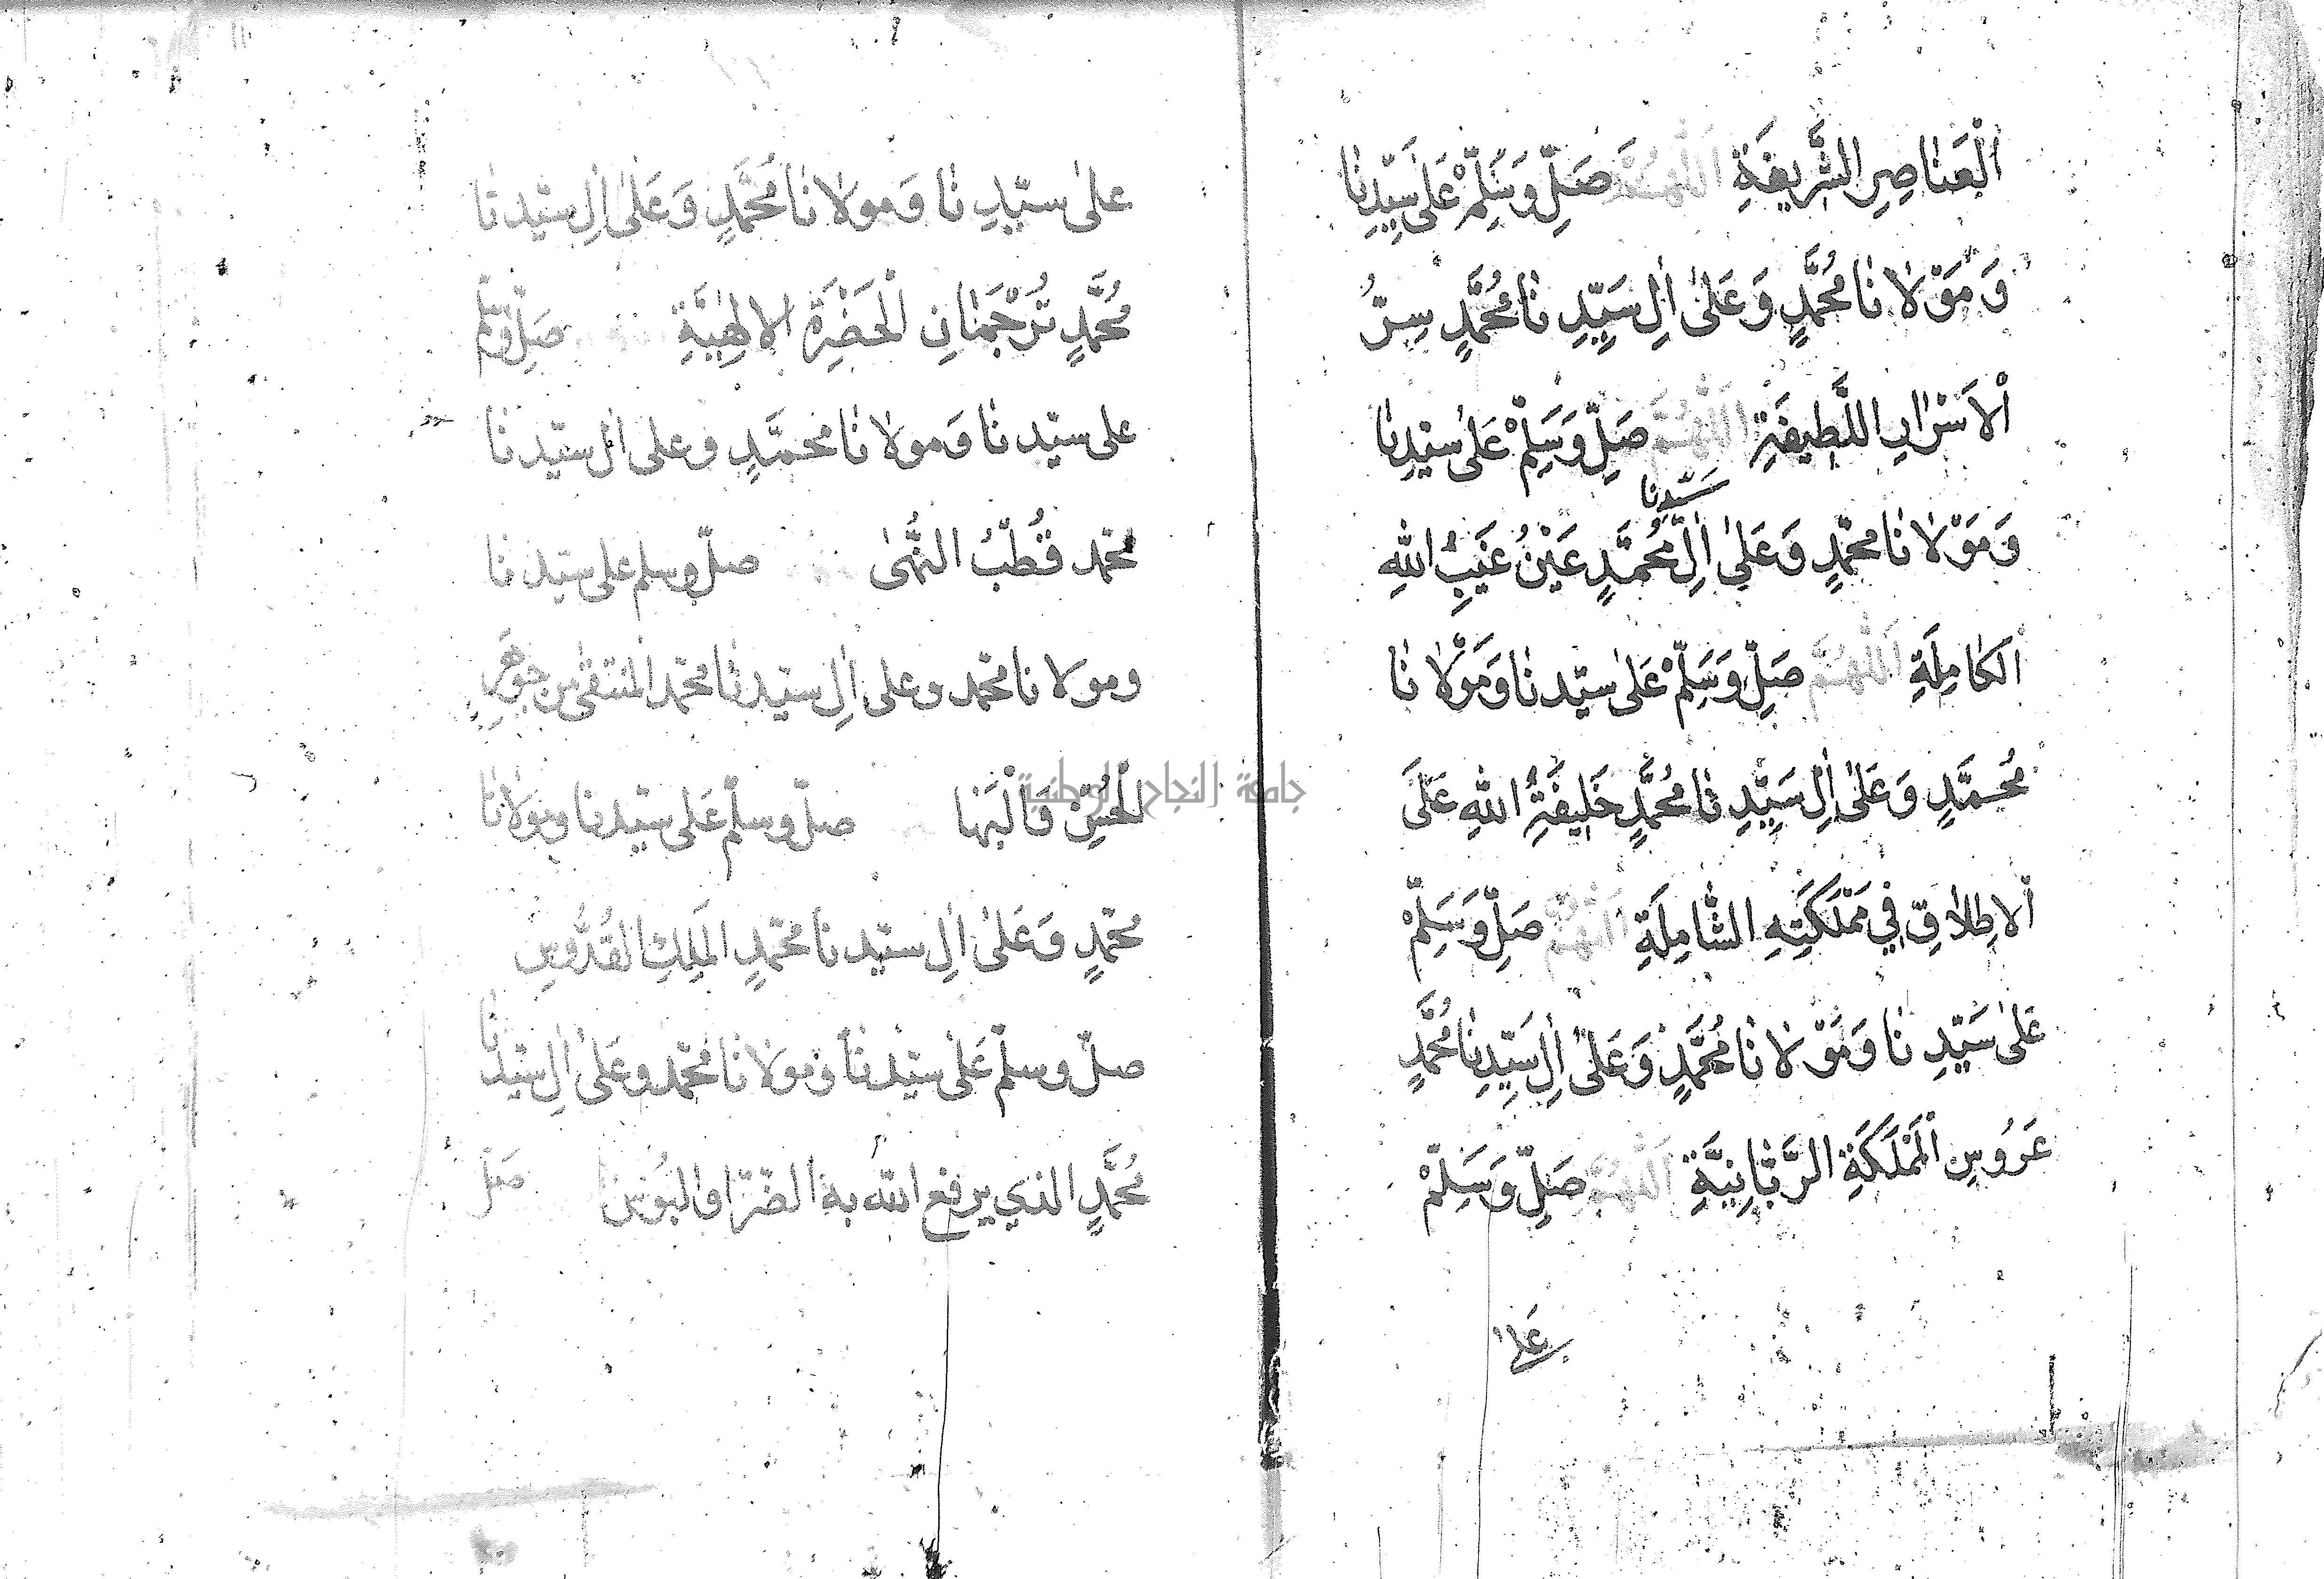 اَلْعَنَاصِرِ الشَّرِيفَةِ اَللّٰهُمَّ صَلِّ وَسَلِّمْ عَلٰى سَيِّدِنَا
وَمَوْلَانَا مُحَمَّدٍ وَعَلٰى اٰلِ سَيِّدِنَا مُحَمَّدٍ سِرُّ
الْاَسْرَارِ اللَّطِيفَةِ اَللّٰهُمَّ صَلِّ وَسَلِّمْ عَلٰى سَيِّدِنَا
سَيِّدِنَا
وَمَوْلَانَا مُحَمَّدٍ وَعَلٰى اٰلِ مُحَمَّدٍ عَيْنُ غَيْبِ اللهِ
الكَامِلَةِ اَللّٰهُمَّ صَلِّ وَسَلِّمْ عَلٰى سَيِّدِنَا وَمَوْلَانَا
مُحَمَّدٍ وَعَلٰى اٰلِ سَيِّدِنَا مُحَمَّدٍ خَلِيفَةُ اللهِ عَلَى
الاِطْلَاقِ فِي مَمْلَكَتِهِ الشَّامِلَةِ اَللّٰهُمَّ صَلِّ وَسَلِّمْ
عَلٰى سَيِّدِنَا وَمَوْلَانَا مُحَمَّدٍ وَعَلٰى اٰلِ سَيِّدِنَا مُحَمَّدٍ
عَرُوسِ الْمَمْلَكَةِ الرَّبَّانِيَّةِ اَللّٰهُمَّ صَلِّ وَسَلِّمْ
عَلٰى
على سيّدِنا وَمولانا مُحَمَّدٍ وَعَلٰى اٰلِ سيّدنا
مُحَمَّدٍ تُرْجَمَانِ الْحَضْرَةِ الالٰهِيَّةِ صَلِّ وسلّم
على سيّدنا وَمولانا محمَّدٍ وعلى اٰل سيّدنا
محمّد قُطْبُ النُّهىٰ صلّ وسلم على سيّدنا
ومولانا محمّد وعلى اٰلِ سيّدنا محمّد المنتقٰى من جوهَرِ
الْحُسْنِ وَالْبَهَا صلّ وسلّم عَلى سيّدنا ومولانا
محمّدٍ وَعَلٰى اٰلِ سيّدنا محمّدٍ المَلِكِ القُدُّوسِ
صلّ وسلّم عَلٰى سيّدنا ومولانا محمّد وعَلٰى اٰلِ سيّدنا
مُحَمَّدٍ الذي يرفع الله به الضّرّا والبُوسَ صلّ
جامعة النجاح الوطنية